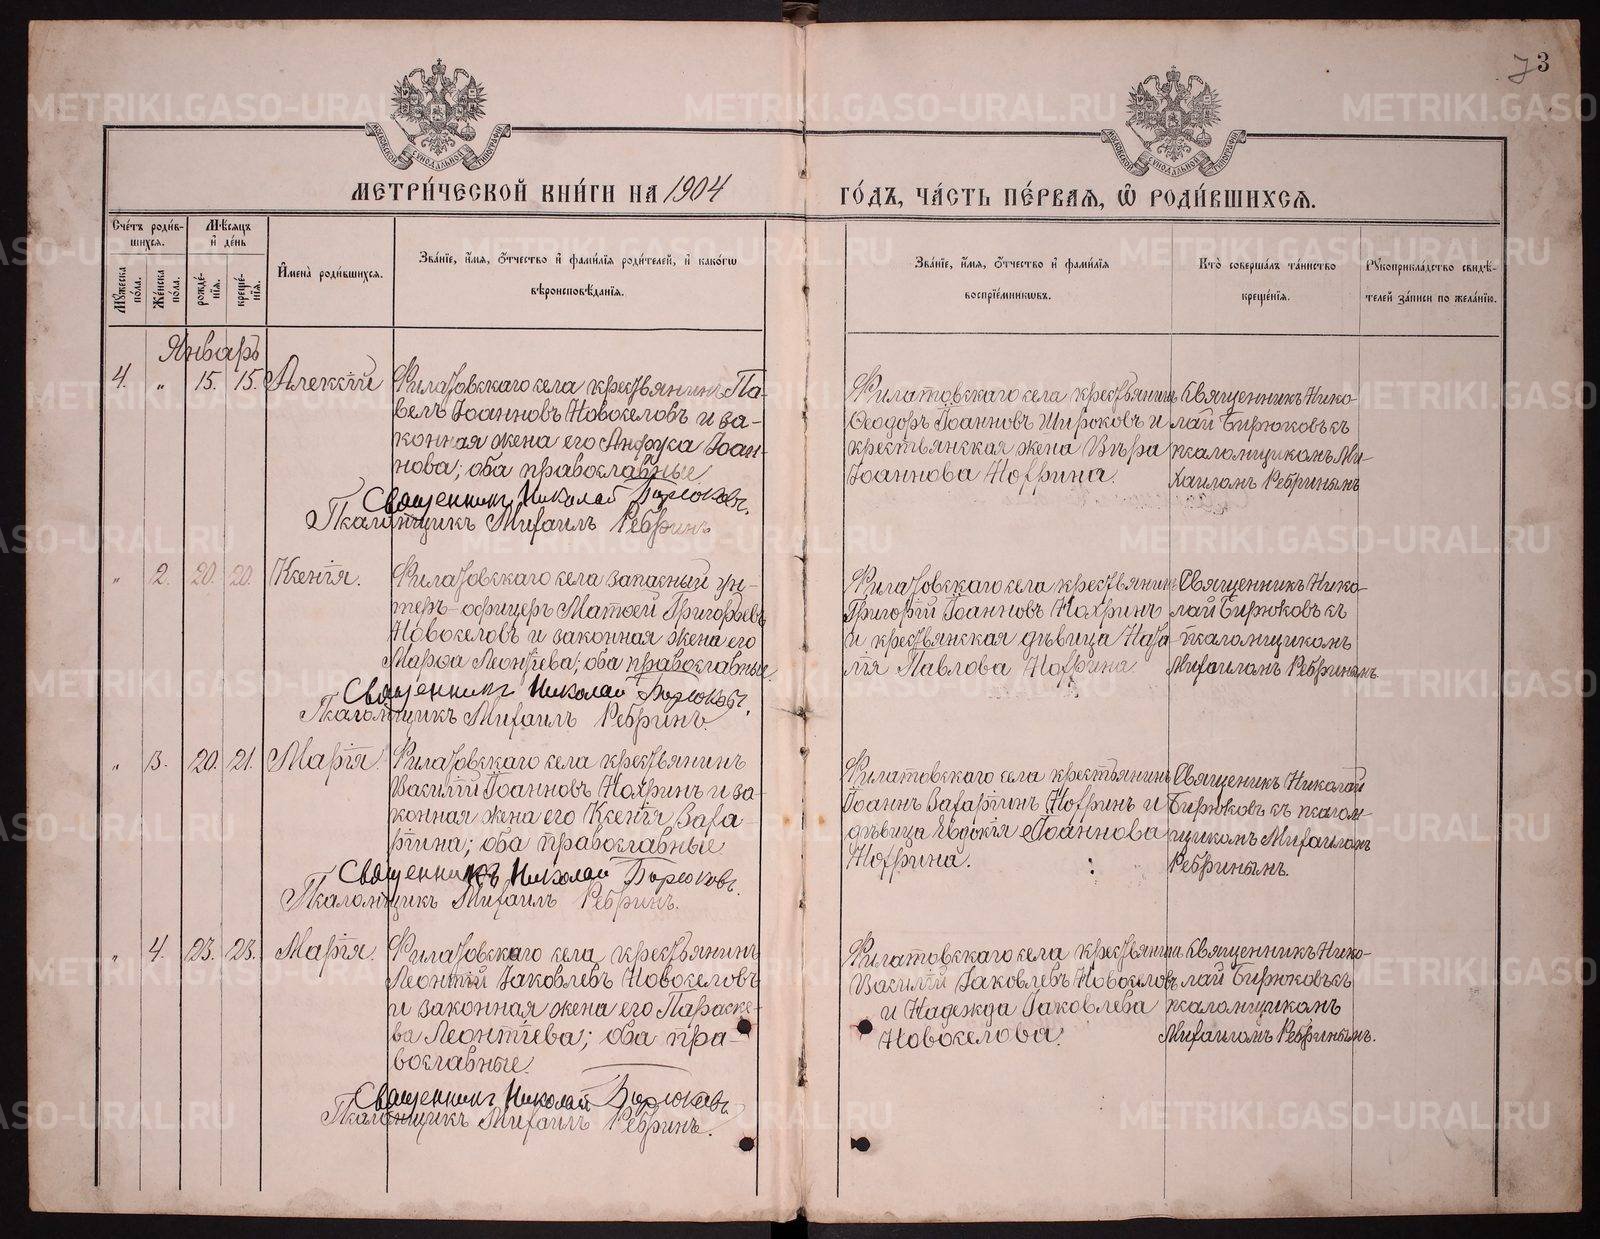 3
МОСКОВСКОЙ СѴНОДАЛЬНОЙ ТИПОГРАФІИ
МОСКОВСКОЙ СѴНОДАЛЬНОЙ ТИПОГРАФІИ
МЕТРИ́ЧЕСКОЙ КНИ́ГИ НА 1904
ГО́ДЪ, ЧА́СТЬ ПЕ́РВАЯ, Ѽ РОДИ́ВШИХСЯ.
Сче́тъ роди́в-
шихся.
Мѣ́сяцъ
и де́нь
Мꙋ́жеска
по́ла.
Же́нска
по́ла.
рожде́-
нїя.
креще́-
нїя.
Имена̀ роди́вшихся.
Зва́нїе, и́мя, о́тчество и фами́лїя роди́телей, и како́гѡ
вѣроисповѣ́данїя.
Зва́нїе, и́мя, о́тчество и фами́лїя
воспрїе́мникѡвъ.
Кто̀ соверша́лъ та́инство
креще́нїя.
Рꙋкоприкла́дство свидѣ́-
телей за́писи по жела́нїю.
Январь
4. „ 15. 15. Алексій
Филатовскаго села крестьянинъ Па-
велъ Іоанновъ Новоселовъ и за-
конная жена его Анфуса Іоан-
нова; оба православные
Священникъ Николай Бирюковъ.
Псаломщикъ Михаилъ Ребринъ.
Филатовскаго села крестьянинъ
Ѳеодоръ Іоанновъ Широковъ и
крестьянская жена Вѣра
Іоаннова Нохрина.
Священникъ Нико-
лай Бирюковъ съ
псаломщикомъ Ми-
хаиломъ Ребринымъ
„ 2. 20. 20. Ксенія.
Филатовскаго села запасный ун-
теръ-офицеръ Матѳей Григорьевъ
Новоселовъ и законная жена его
Марѳа Леонтіева; оба православные
Священникъ Николай Бирюковъ.
Псаломщикъ Михаилъ Ребринъ.
Филатовскаго села крестьянинъ
Григорій Іоанновъ Нохринъ
и крестьянская дѣвица Ната-
лія Павлова Нохрина
Священникъ Нико-
лай Бирюковъ съ
псаломщикомъ
Михаиломъ Ребринымъ.
„ 3. 20. 21. Марія.
Филатовскаго села крестьянинъ
Василій Іоанновъ Нохринъ и за-
конная жена его Ксенія Заха-
ріина; оба православные
Священникъ Николай Бирюковъ.
Псаломщикъ Михаилъ Ребринъ.
Филатовскаго села крестьянинъ
Іоаннъ Захаріинъ Нохринъ и
дѣвица Евдокія Іоаннова
Нохрина.
Священикъ Николай
Бирюковъ съ псалом-
щикомъ Михаиломъ
Ребринымъ.
„ 4. 23. 23. Марія.
Филатовскаго села крестьянинъ
Леонтій Іаковлевъ Новоселовъ
и законная жена его Параске-
ва Леонтіева; оба пра-
вославные.
Священникъ Николай Бирюковъ.
Псаломщикъ Михаилъ Ребринъ.
Филатовскаго села крестьянинъ
Василій Іаковлевъ Новоселовъ
и Надежда Іаковлева
Новоселова.
Священникъ Нико-
лай Бирюковъ съ
псаломщикомъ
Михаиломъ Ребринымъ.
METRIKI.GASO-URAL.RU